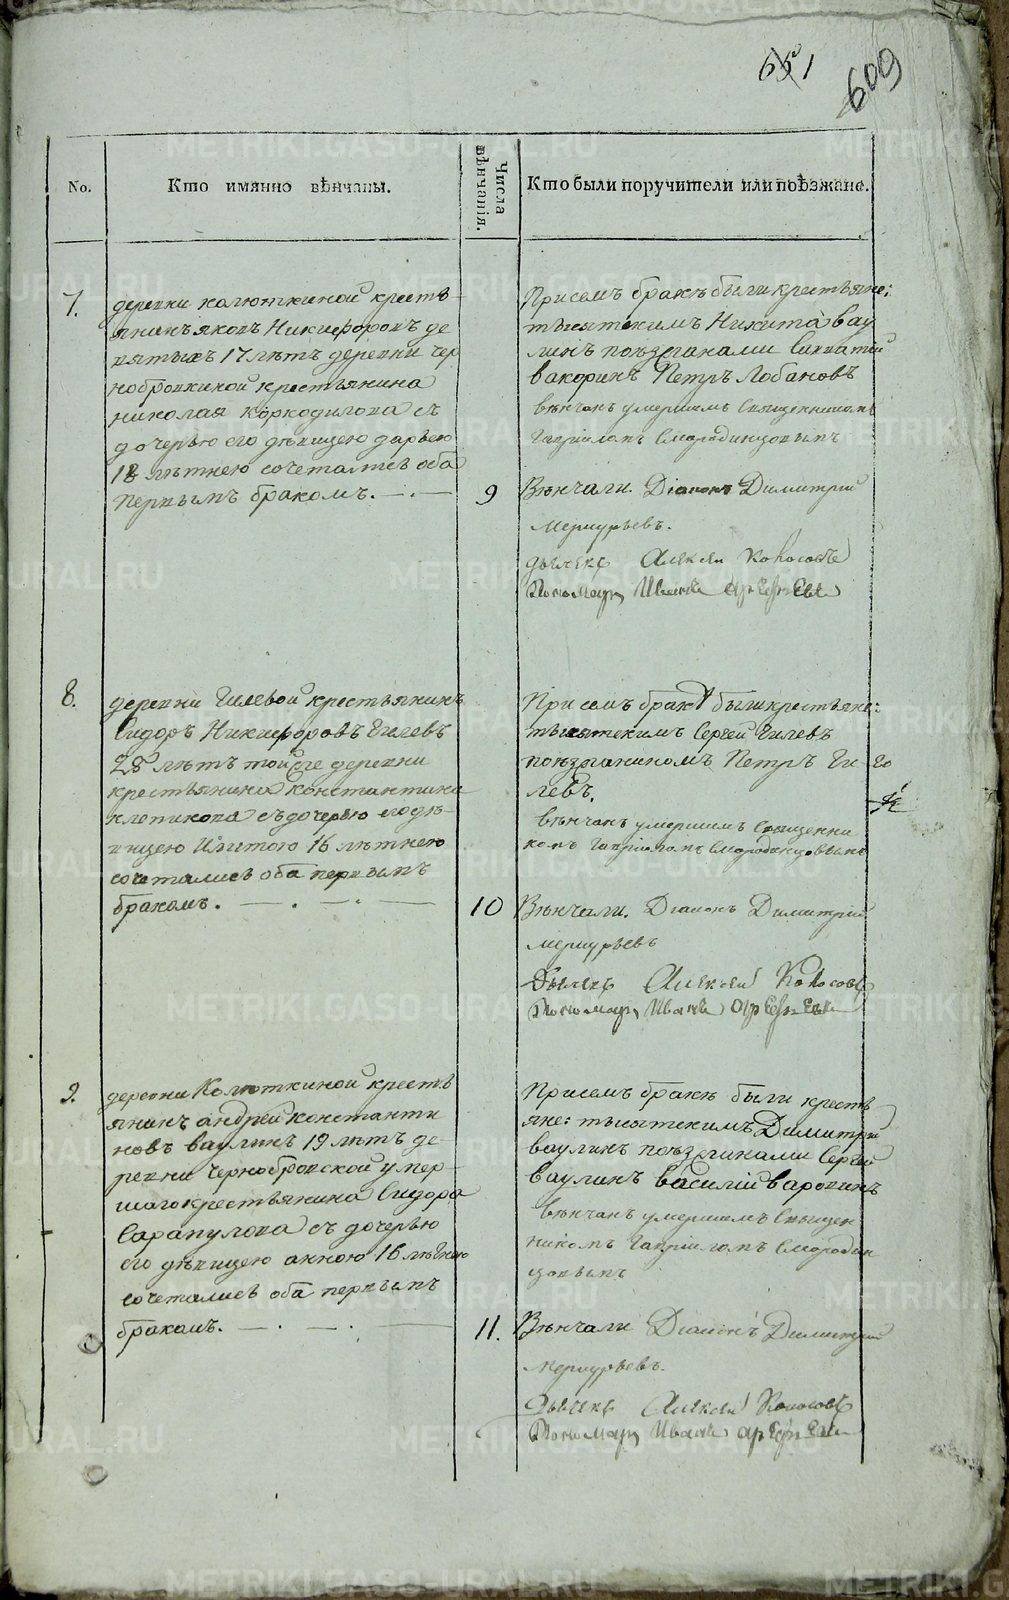 651
609
No.
Кто имянно вѣнчаны.
Числа вѣнчанія.
Кто были поручители или поѣзжане.
7.
деревни калюткиной кресть-
янинъ яковъ Никифоровъ де
вятыхъ 17 лѣтъ деревни чер
нобровкиной крестьянина
николая коркодилова съ
дочерью его дѣвицею дарьею
18 лѣтнею сочетались оба
первымъ бракомъ.
9
При семъ бракѣ были крестьяне:
тысятскимъ Никита вау
линъ поѣзжанами
вакоринъ Петръ Лобановъ
вѣнчанъ умершимъ священникомъ
гавріиломъ Смородинцовымъ
Вѣнчали. Діаконъ Димитрій
меркурьевъ.
дьячекъ Алексей Колосовъ
Пономарь Иванъ арефьевъ
8.
деревни Гилевой крестьянинъ
Сидоръ Никифоровъ Гилевъ
25 лѣтъ той же деревни
крестьянина константина
клепикова съ дочерью его дѣ-
вицею 16 лѣтнею
сочетались оба первымъ
бракомъ.
10
При семъ бракѣ были крестьяне:
тысятскимъ Сергей Гилевъ
поѣзжаниномъ Петръ Ги-
левъ.
вѣнчанъ умершимъ священни
комъ гавріиломъ Смородинцовымъ
Вѣнчали. Діаконъ Димитрій
меркурьевъ
Дьячекъ Алексей Колосовъ
Пономарь Иванъ арефьевъ
9.
деревни Калюткиной кресть
янинъ андрей константи
новъ ваулинъ 19 лѣтъ де-
ревни Чернобровской умер-
шаго крестьянина Сидора
Сарапулова съ дочерью
его дѣвицею анною 16 лѣтнею
сочетались оба первымъ
бракомъ.
11.
При семъ бракѣ были кресть
яне: тысятскимъ Димитрій
ваулинъ поѣзжанами Сергей
ваулинъ василій
вѣнчанъ умершимъ священ
никомъ гавріиломъ Смородин
цовымъ
Вѣнчали Діаконъ Димитрій
меркурьевъ.
Дьячекъ Алексей Колосовъ
Пономарь Иванъ арефьевъ
METRIKI.GASO-URAL.RU